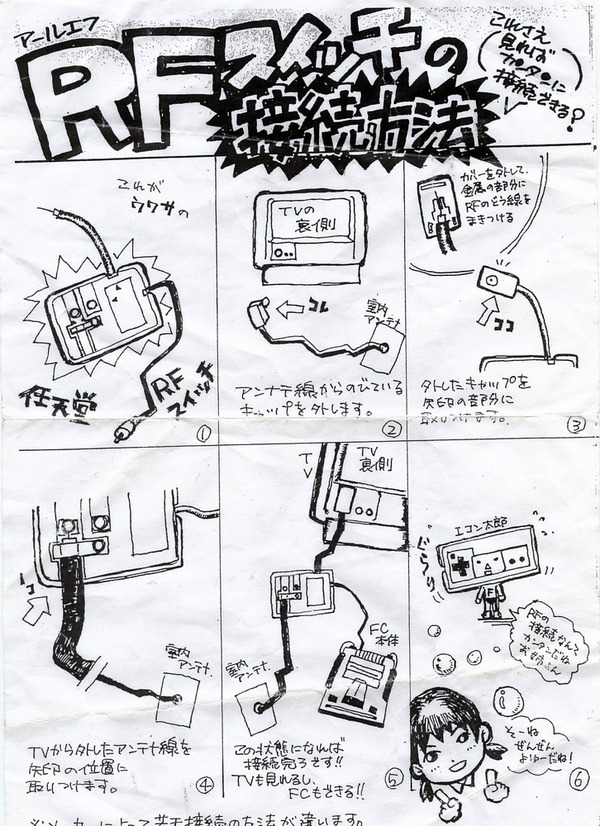 アールエフ
RFスイッチの
接続方法
これさえ
見れば
カンタンに
接続できる?
これが
ウワサの
任天堂
RF
スイッチ
①
TVの
裏側
コレ
室内
アンテナ
アンテナ線からのびている
キャップを外します。
②
カバーを外して、
金属の部分に
RFのどう線を
まきつける
ココ
外したキャップを
矢印の部分に
取りつけます。
③
ココ
室内
アンテナ
TVから外したアンテナ線を
矢印の位置に
取りつけます。
④
TV
TV
裏側
FC
本体
室内
アンテナ
この状態になれば
接続完了です!!
TVも見れるし、
FCもできる!!
⑤
エコン太郎
ぐらり
F
RFの
接続なんて
カンタンだね
お姉さん
そーね
ぜんぜん
よゆーだね!
⑥
※メーカーによって若干接続の方法が違います。